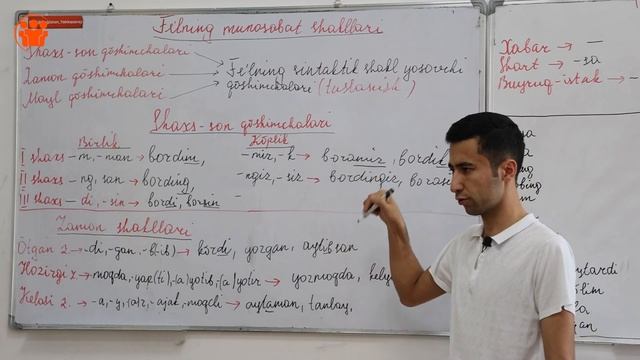 Fe'lning munosabat shakllari
Shaxs-son qo'shimchalari
Zamon qo'shimchalari
Mayl qo'shimchalari
Fe'lning sintaktik shakl yasovchi
qo'shimchalari (tuslanish)
Shaxs-son qo'shimchalari
Birlik Ko'plik
I shaxs -m, -man → bordim, -miz, -k → boramiz, bordik
II shaxs -ng, san → bording, -ngiz, -siz → bordingiz,
III shaxs -di, -sin → bordi, borsin -
Zamon shakllari
O'tgan z. → -di, -gan, -b(-ib) → ko'rdi, yozgan, aytibsan
Hozirgi z. → -moqda, -yap(ti), -(a)yotib, -(a)yotir → yozmoqda,
Kelasi z. → -a, -y, -(a)r, -ajak, -moqchi → aytaman,
Xabar → —
Shart → -sa
Buyruq-istak → -